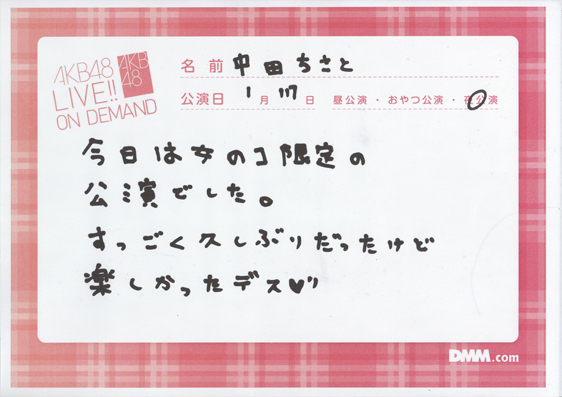 AKB48
LIVE!!
ON DEMAND
AKB
48
名前 中田ちさと
公演日 1月17日 昼公演・おやつ公演・夜公演
今日は女のコ限定の
公演でした。
すっごく久しぶりだったけど
楽しかったデス♥"
DMM.com